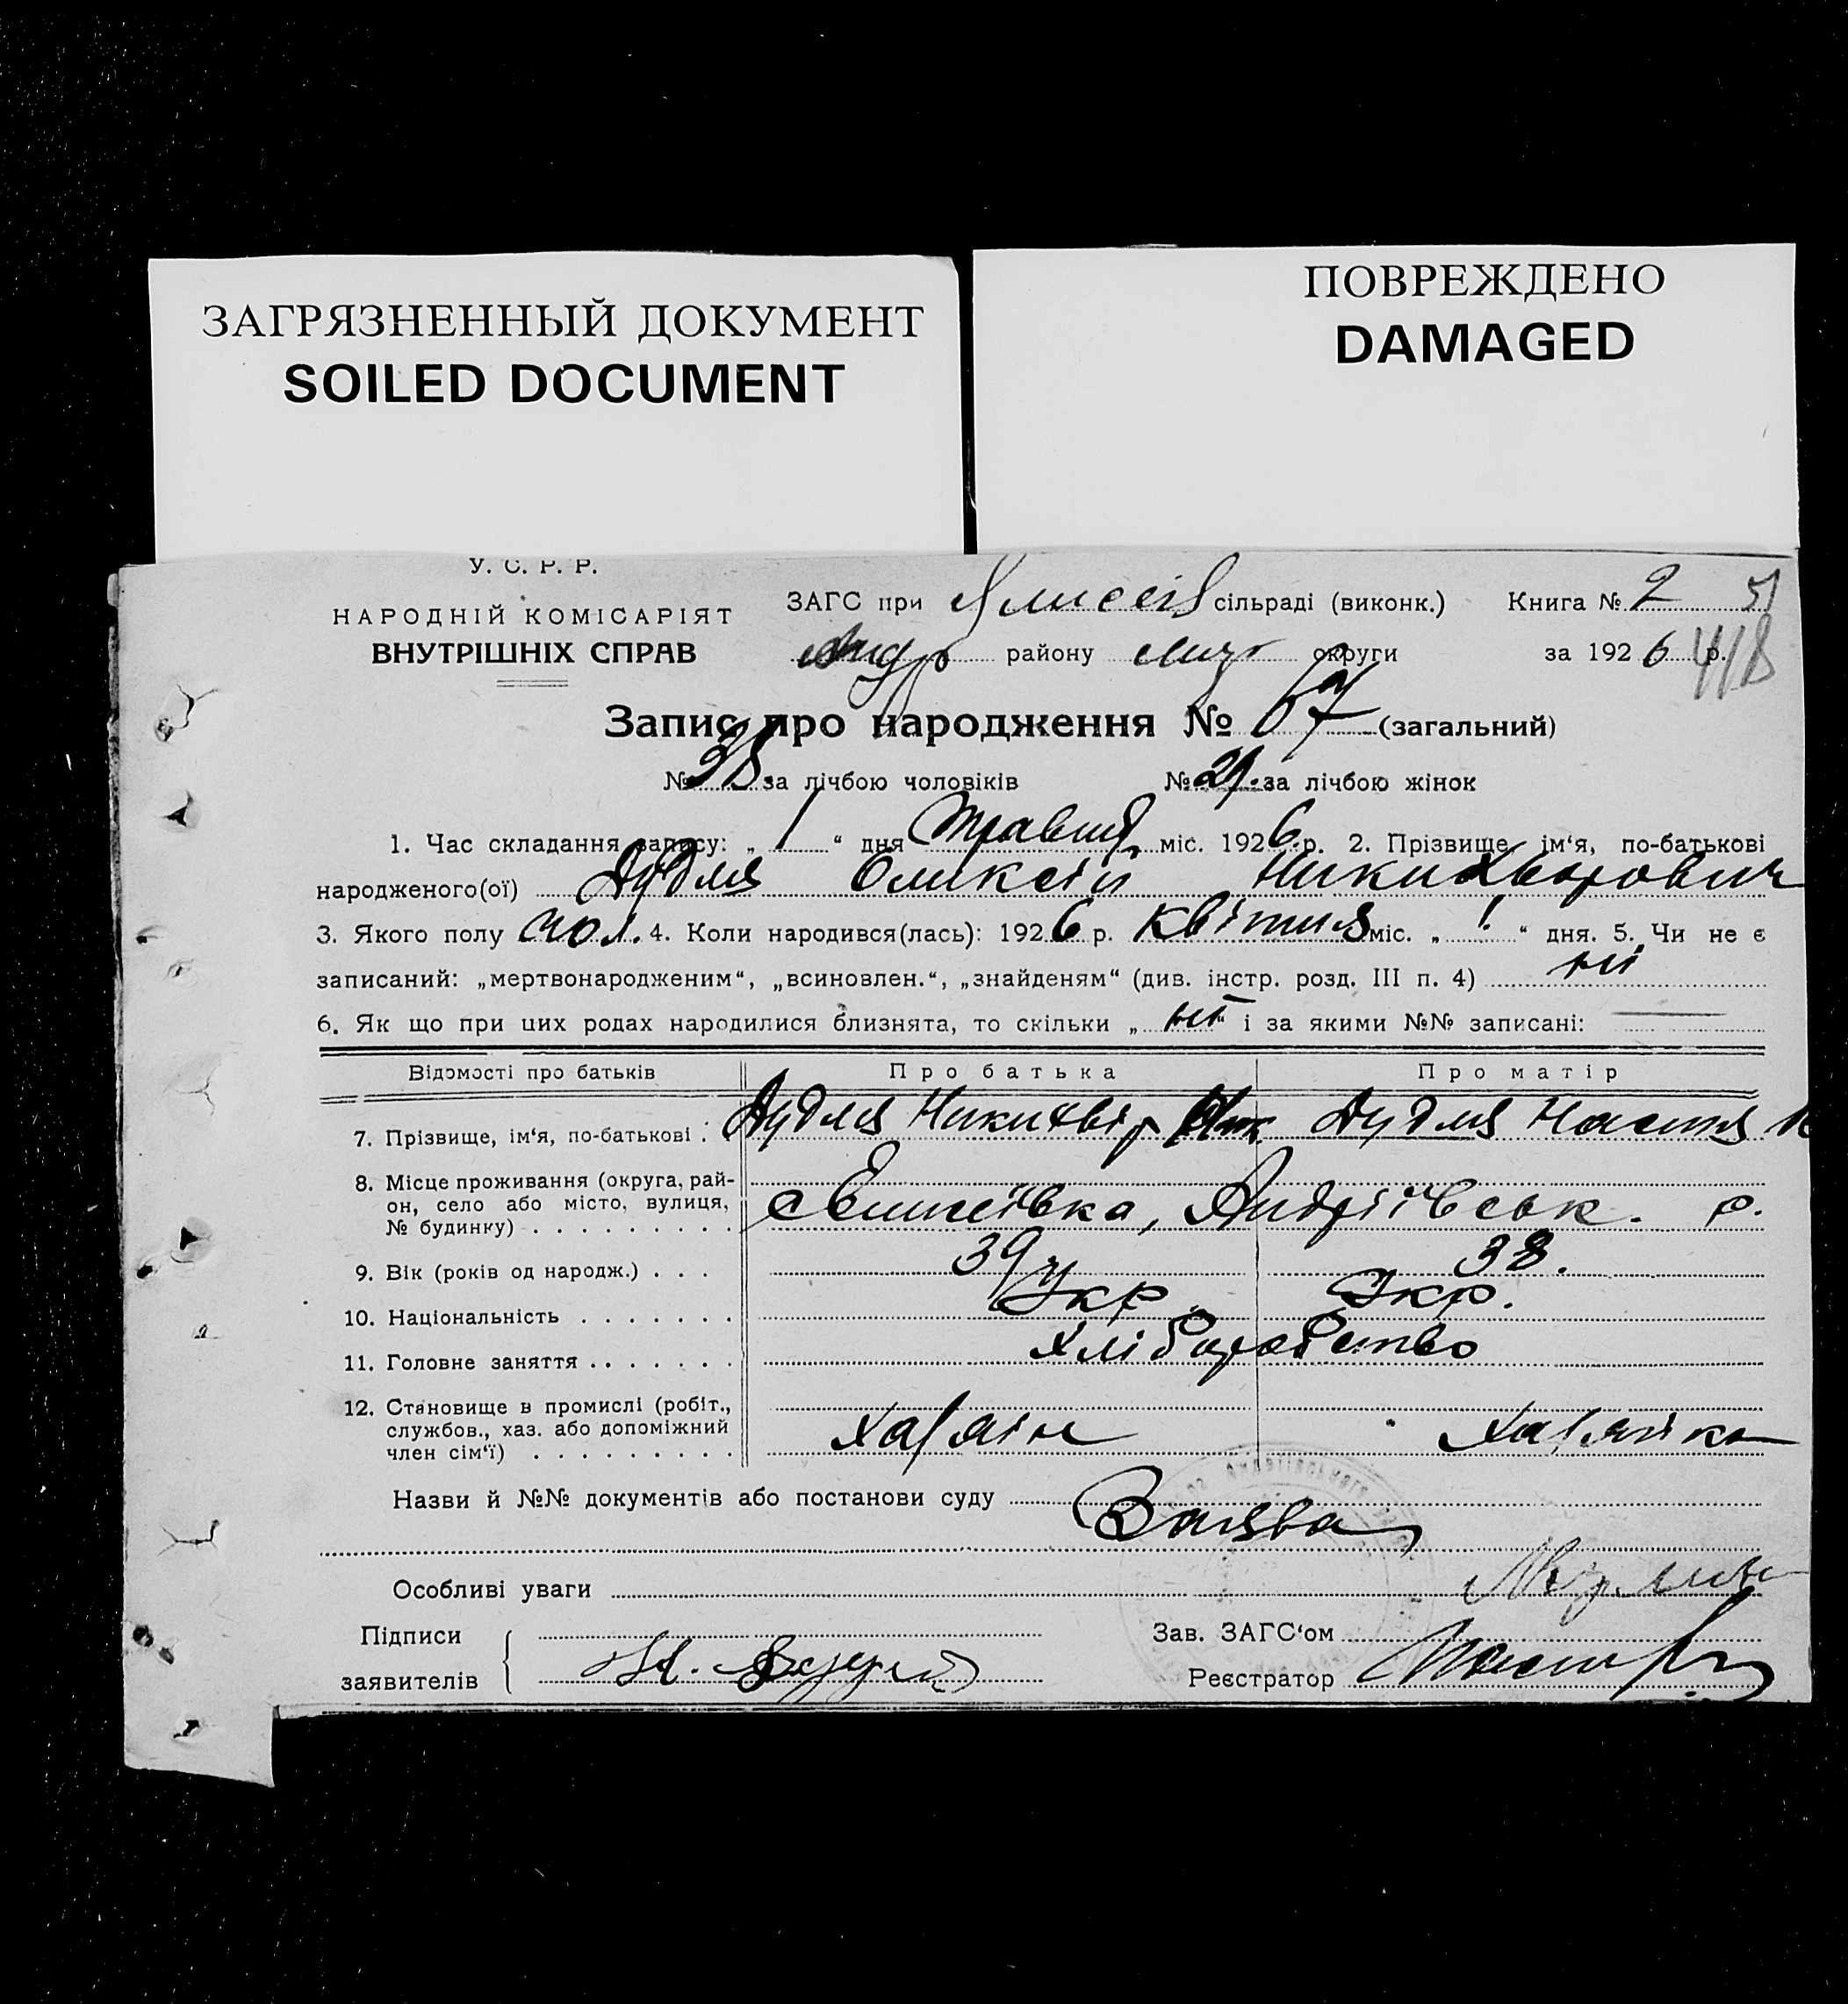 ЗАГРЯЗНЕННЫЙ ДОКУМЕНТ
SOILED DOCUMENT
ПОВРЕЖДЕНО
DAMAGED
У. С. Р. Р.
НАРОДНІЙ КОМІСАРІЯТ
ВНУТРІШНІХ СПРАВ
ЗАГС при сільраді (виконк.) Книга № 2 51
Андр району округи за 1926 р. 418
Запис про народження № 67 (загальний)
№ 38 за лічбою чоловіків № 29. за лічбою жінок
1. Час складання запису: „ 1 “ дня Травня міс. 1926 р. 2. Прізвище, ім‘я, по-батькові
народженого(ої) Дудля Оликсій Никихворович
3. Якого полу чол. 4. Коли народився(лась): 1926 р. Квітня міс. „ “ дня. 5. Чи не є
записаний: „мертвонародженим“, „всиновлен.“, „знайденям“ (див. інстр. розд. III п. 4) ні
6. Як що при цих родах народилися близнята, то скільки „ ні “ і за якими №№ записані:
Відомості про батьків Про батька Про матір
7. Прізвище, ім‘я, по-батькові : Дудля Никихвір Дудля Настя
8. Місце проживання (округа, рай-
он, село або місто, вулиця,
№ будинку) . . . . . . . . . Єлисеівка, Андріівськ. р.
9. Вік (років од народж.) . . . 39 38.
10. Національність . . . . . . . Укр. Укр.
11. Головне заняття . . . . . . . Хліборобство
12. Становище в промислі (робіт.,
службов., хаз. або допоміжний
член сім‘ї) . . . . . . . . . Хазяін Хазяйка
Назви й №№ документів або постанови суду
Заява
Особливі уваги
Підписи
заявителів
Зав. ЗАГС‘ом
Реєстратор